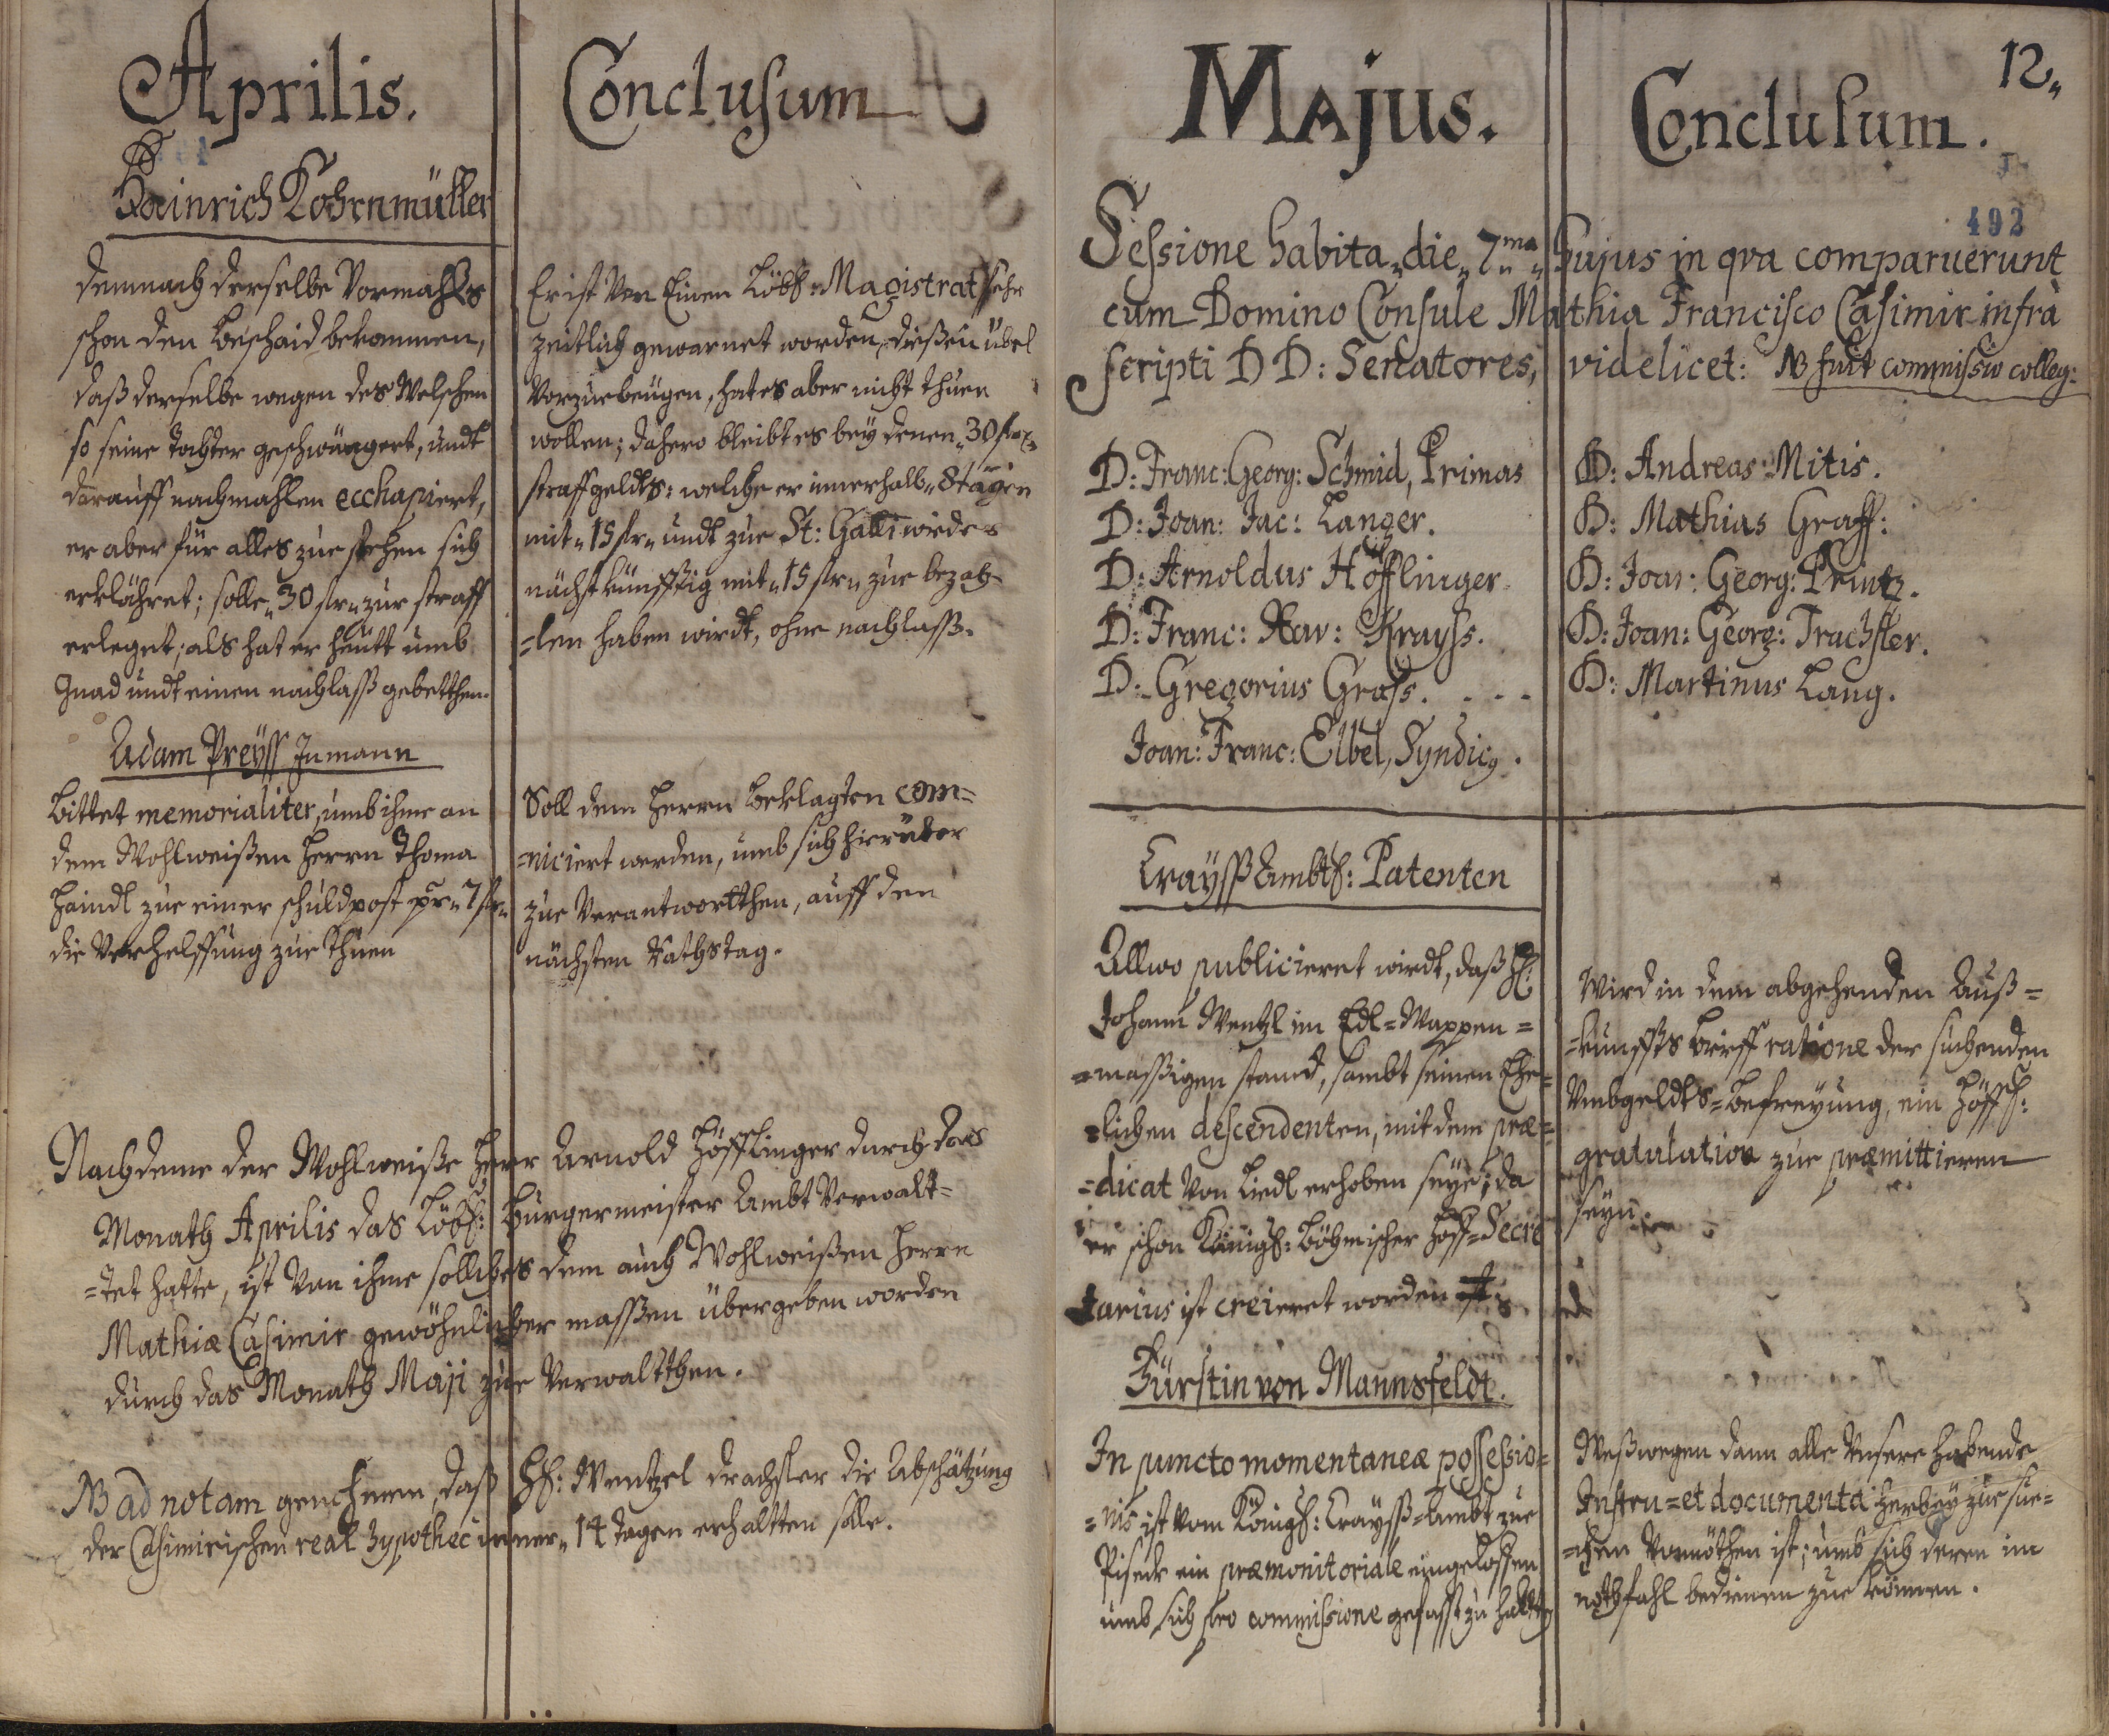 Aprilis.
Hainrich Kohrnmüller
demnach derselbe Vormahls
schon den beschaid bekommen,
daß derselbe wegen des Welschen
so seine tochter geschwängert, undt
darauff nachmahlen ecchapiert,
er aber für alles zue stehen sich
erklähret; solle „30 fl„ zur straff
erleget; als hat er heütt umb
Gnad undt einen nachlaß gebetthen.
Adam Preyß Inmann
bittet memorialiter, umb ihme an
dem Wohlweißen Herrn Thoma
Haindl zue einer schuldpost pr „7 fl„
die Verhelffung zue thuen
Conclusum
Er ist Von Einen Löbl: Magistrat sehr
zeitlich gewarnet worden, dießen übel
Vorzuebeugen, hat es aber nicht thuen
wollen; dahero bleibt es bey denen „30 fl„
straffgeldts: welche er innerhalb „8 tägen
mit „15 fl„ undt zue St: Galli wider
nächstkünfftig mit „15 fl„ zue bezah=
=len haben wirdt, ohne nachlaß.
Soll dem Herrn beklagten com=
=niciert werden, umb sich hierüber
zue Verantwortthen, auff den
nächsten Rathstag.
Nachdeme der Wohlweiße Herr Arnold Höfflinger durch das
Monath Aprilis das Löbl: Burgermeister Ambt Verwalt=
=tet hatte, ist Von ihme solliches dem auch Wohlweißen Herrn
Mathiæ Casimir gewöhnlicher massen übergeben worden
durch das Monath Maji zue Verwaltthen.
NB ad notam genehmen, daß Hl: Wentzel drachsler die Abschätzung
der Casimirischen real hypothec inner „14 tagen erhaltten solle.
Majus.
Conclusum.
12„
492
Sessione habita „die „7ma„ hujus in qva comparuerunt
cum Domino Consule Mathia Francisco Casimir infrà
scripti DD: Senatores, videlicet: NB fuit commissio colleg:
D: Franc: Georg: Schmid, Primas
D: Joan: Jac: Langer.
D: Arnoldus Höfflinger
D: Franc: Xav: Krayss.
D: Gregorius Grass. . . .
Joan: Franc: Elbel, Syndicg.
D: Andreas Mitis.
D: Mathias Graff:
D: Joan: Georg: Printz.
D: Joan: Georg: Trachsler.
D: Martinus Lang.
Crayß Ambtl: Patenten
Allwo publicieret wirdt, daß Hl:
Johann Wentzl im Edl=Wappen=
=massigen stand, sambt seinen Ehe=
=lichen descendenten, mit dem præ=
=dicat Von Liedl erhoben seye; da
er schon Königl: Böhmischer Hoff=Secre
tarius ist creieret worden
Fürstin von Mannsfeldt.
In puncto momentaneæ possessio=
=nis ist vom Königl: Crayß=Ambt zue
Pisek ein præmonitoriale eingeloffen
umb sich pro commissione gefasst zu halten
Wird in dem abgehenden Auß=
=kunffts brieff ratione der suchenden
Umbgeldts=befreyung, ein Höffl:
gratulation zue præmittieren
seyn.
Weßwegen dann alle Unsere habende
Instru=et documenta herbey zue sue=
=chen Vonnöthen ist; umb sich deren im
nothfahl bedienen zue können.